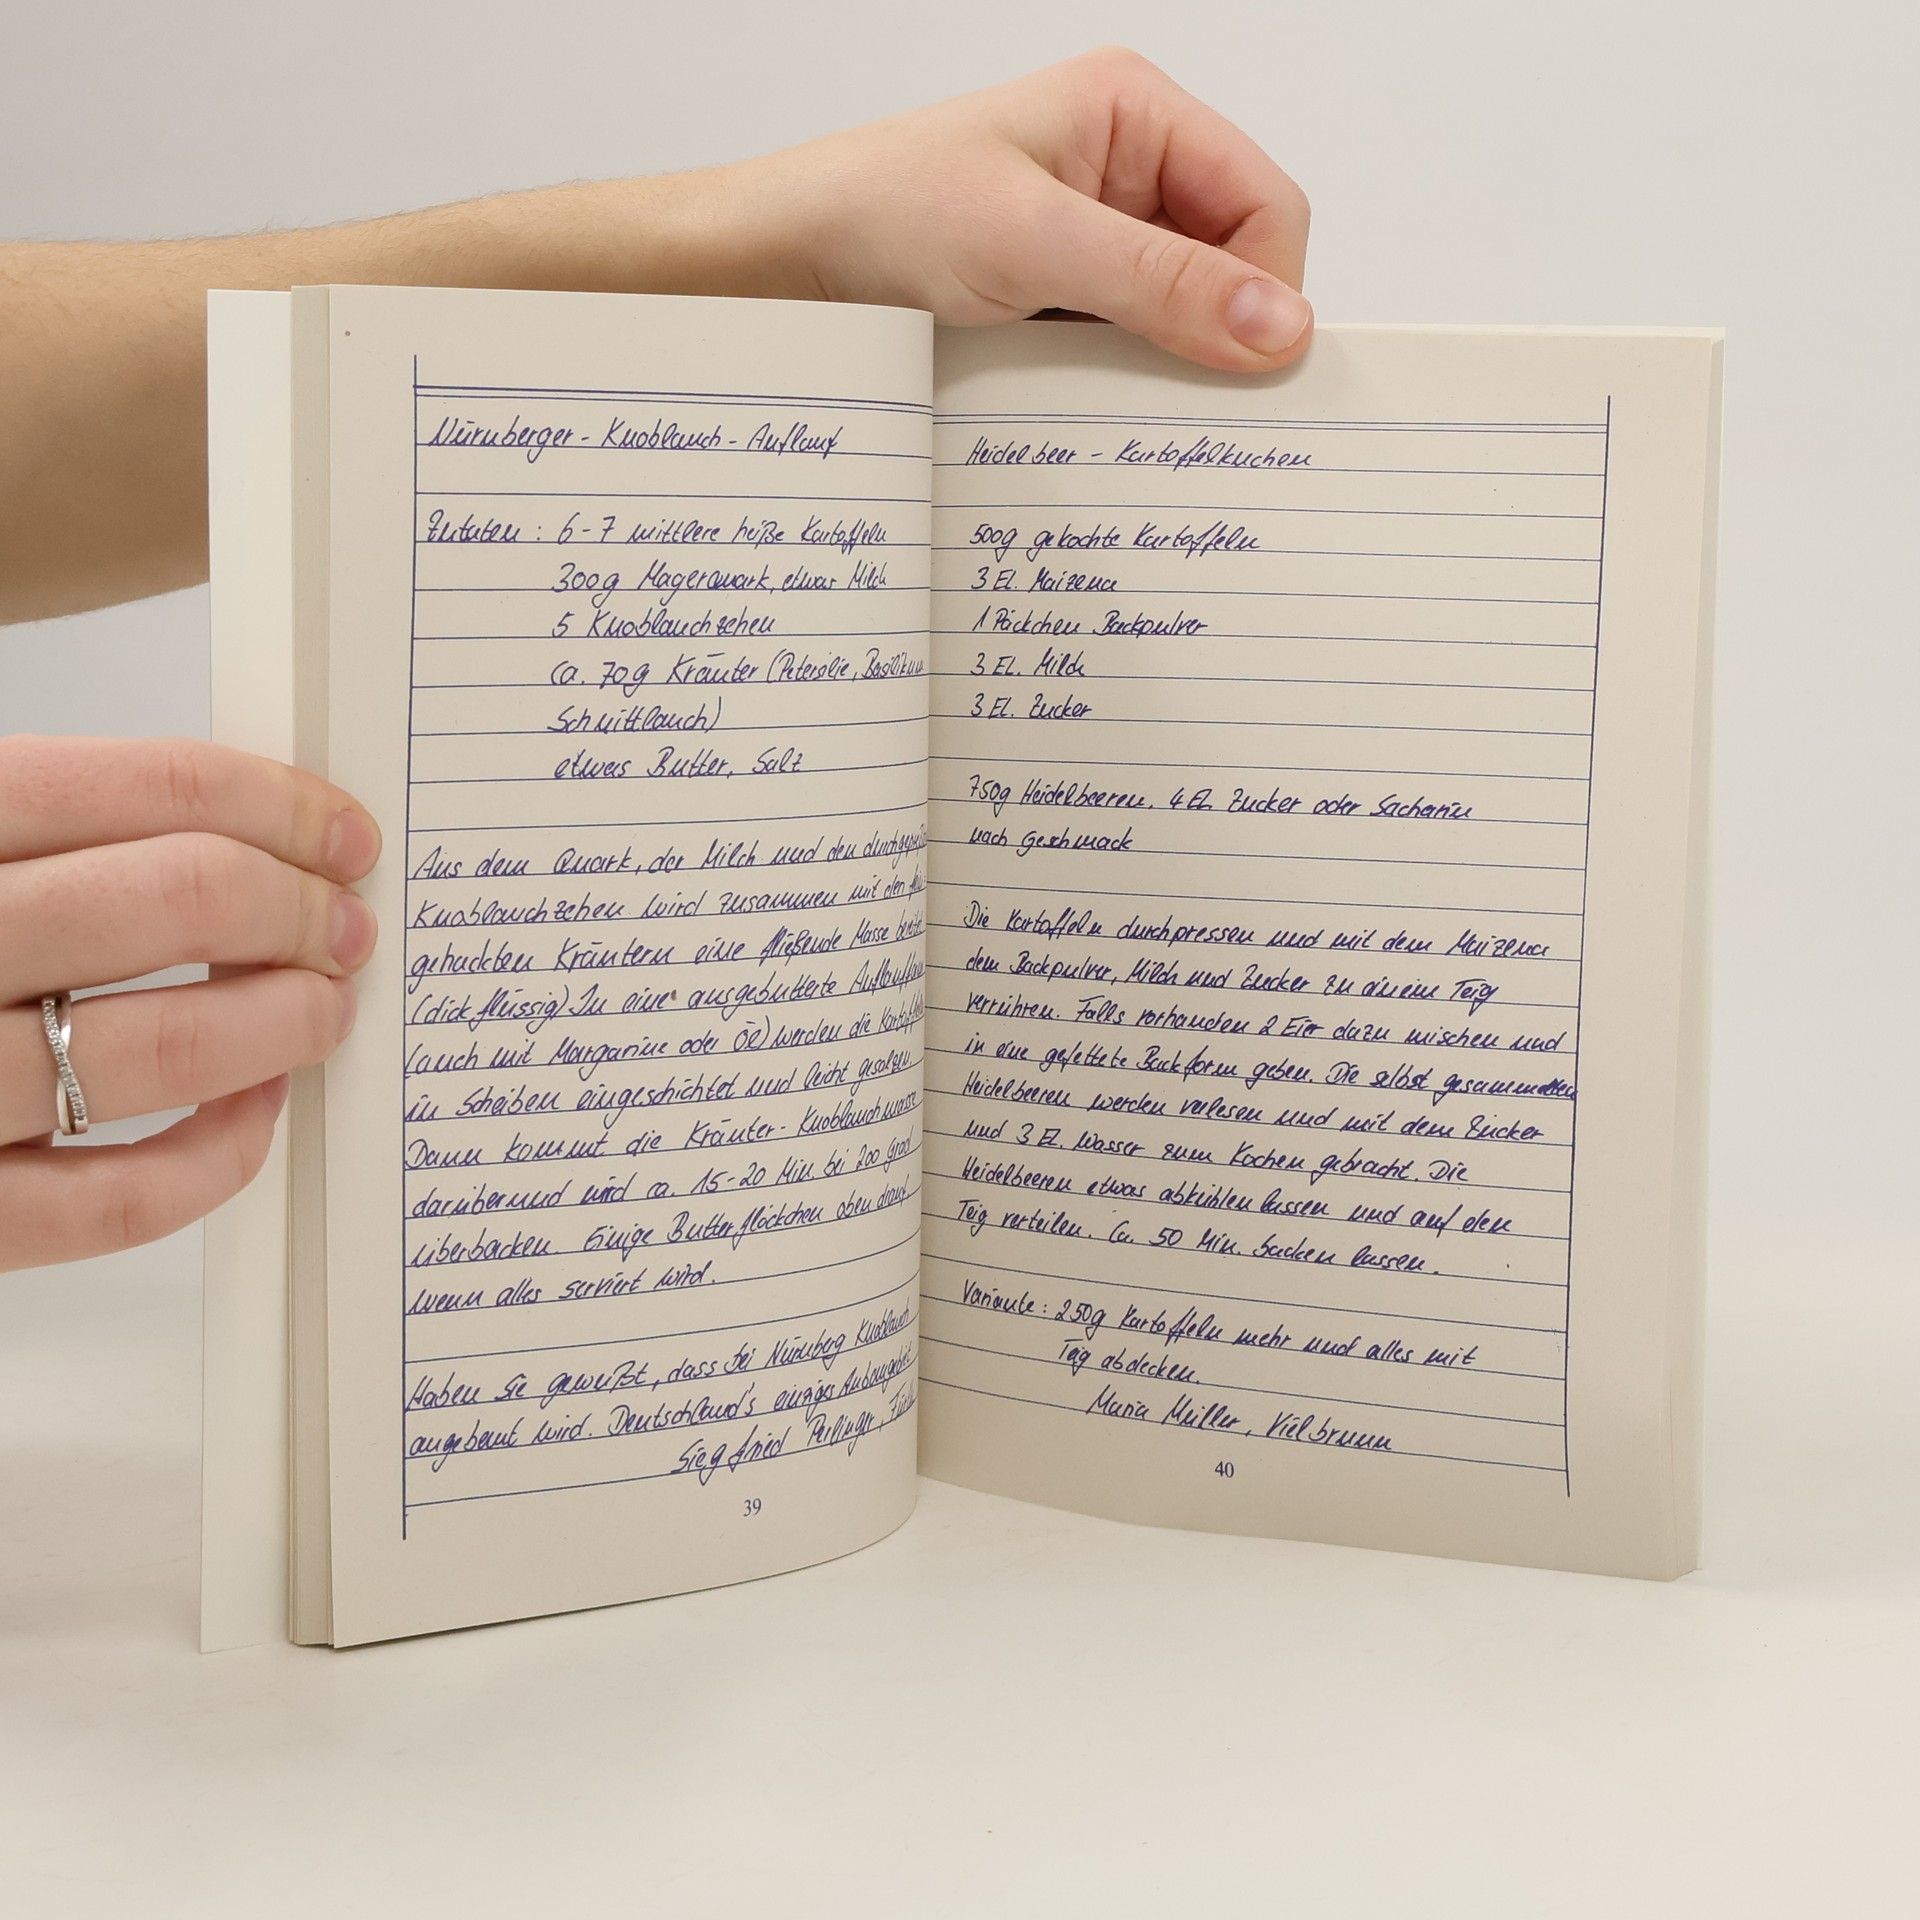 Nürnberger - Knoblauch - Auflauf
Zutaten : 6 - 7 mittlere heiße Kartoffeln
300g Magerquark, etwas Milch
5 Knoblauchzehen
ca. 70g Kräuter (Petersilie, Basilikum
Schnittlauch)
etwas Butter, Salz
Aus dem Quark, der Milch und den
Knoblauchzehen wird zusammen mit den
gehackten Kräutern eine fließende Masse
(dickflüssig) In eine ausgebutterte
(auch mit Margarine oder Öl) werden die
in Scheiben eingeschichtet und leicht gesalzen.
Dann kommt die Kräuter - Knoblauchmasse
darüber und wird ca. 15 - 20 Min. bei 200 Grad
überbacken. Einige Butterflöckchen oben drauf
wenn alles serviert wird.
Haben Sie gewußt, dass bei Nürnberg Knoblauch
angebaut wird. Deutschland's einziges Anbaugebiet
Siegfried
39
Heidelbeer - Kartoffelkuchen
500g gekochte Kartoffeln
3 El. Maizena
1 Päckchen Backpulver
3 El. Milch
3 El. Zucker
750g Heidelbeeren, 4 El. Zucker oder Sacharin
nach Geschmack
Die Kartoffeln durchpressen und mit dem Maizena
dem Backpulver, Milch und Zucker zu einem Teig
verrühren. Falls vorhanden 2 Eier dazu mischen und
in eine gefettete Backform geben. Die selbst gesammelten
Heidelbeeren werden verlesen und mit dem Zucker
und 3 El. Wasser zum Kochen gebracht. Die
Heidelbeeren etwas abkühlen lassen und auf den
Teig verteilen. Ca. 50 Min. backen lassen.
Variante : 250g Kartoffeln mehr und alles mit
Teig abdecken.
Maria Müller, Vielbrunn
40